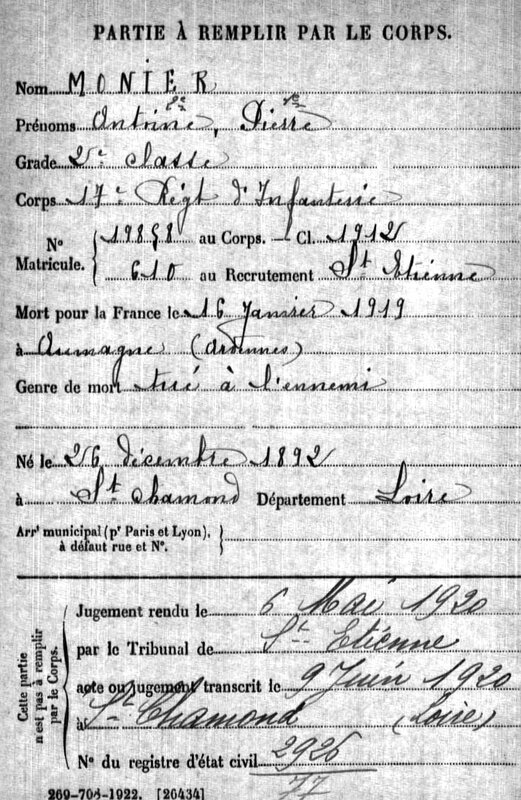 PARTIE À REMPLIR PAR LE CORPS.
Nom MONIER
Prénoms Antoine, Pierre
Grade 2e classe
Corps 17e Régt d'Infanterie
N° Matricule. { 19858 au Corps. — Cl. 1912
610 au Recrutement St Etienne
Mort pour la France le 16 Janvier 1919
à Aumagne (Ardennes)
Genre de mort tué à l'ennemi
Né le 26 décembre 1892
à St Chamond Département Loire
Arrt municipal (pr Paris et Lyon),
à défaut rue et N°.
Cette partie n'est pas à remplir par le Corps.
Jugement rendu le 6 Mai 1920
par le Tribunal de St Etienne
acte ou jugement transcrit le 9 Juin 1920
à St Chamond (Loire)
N° du registre d'état civil 2925
77
269-708-1922. [26434]